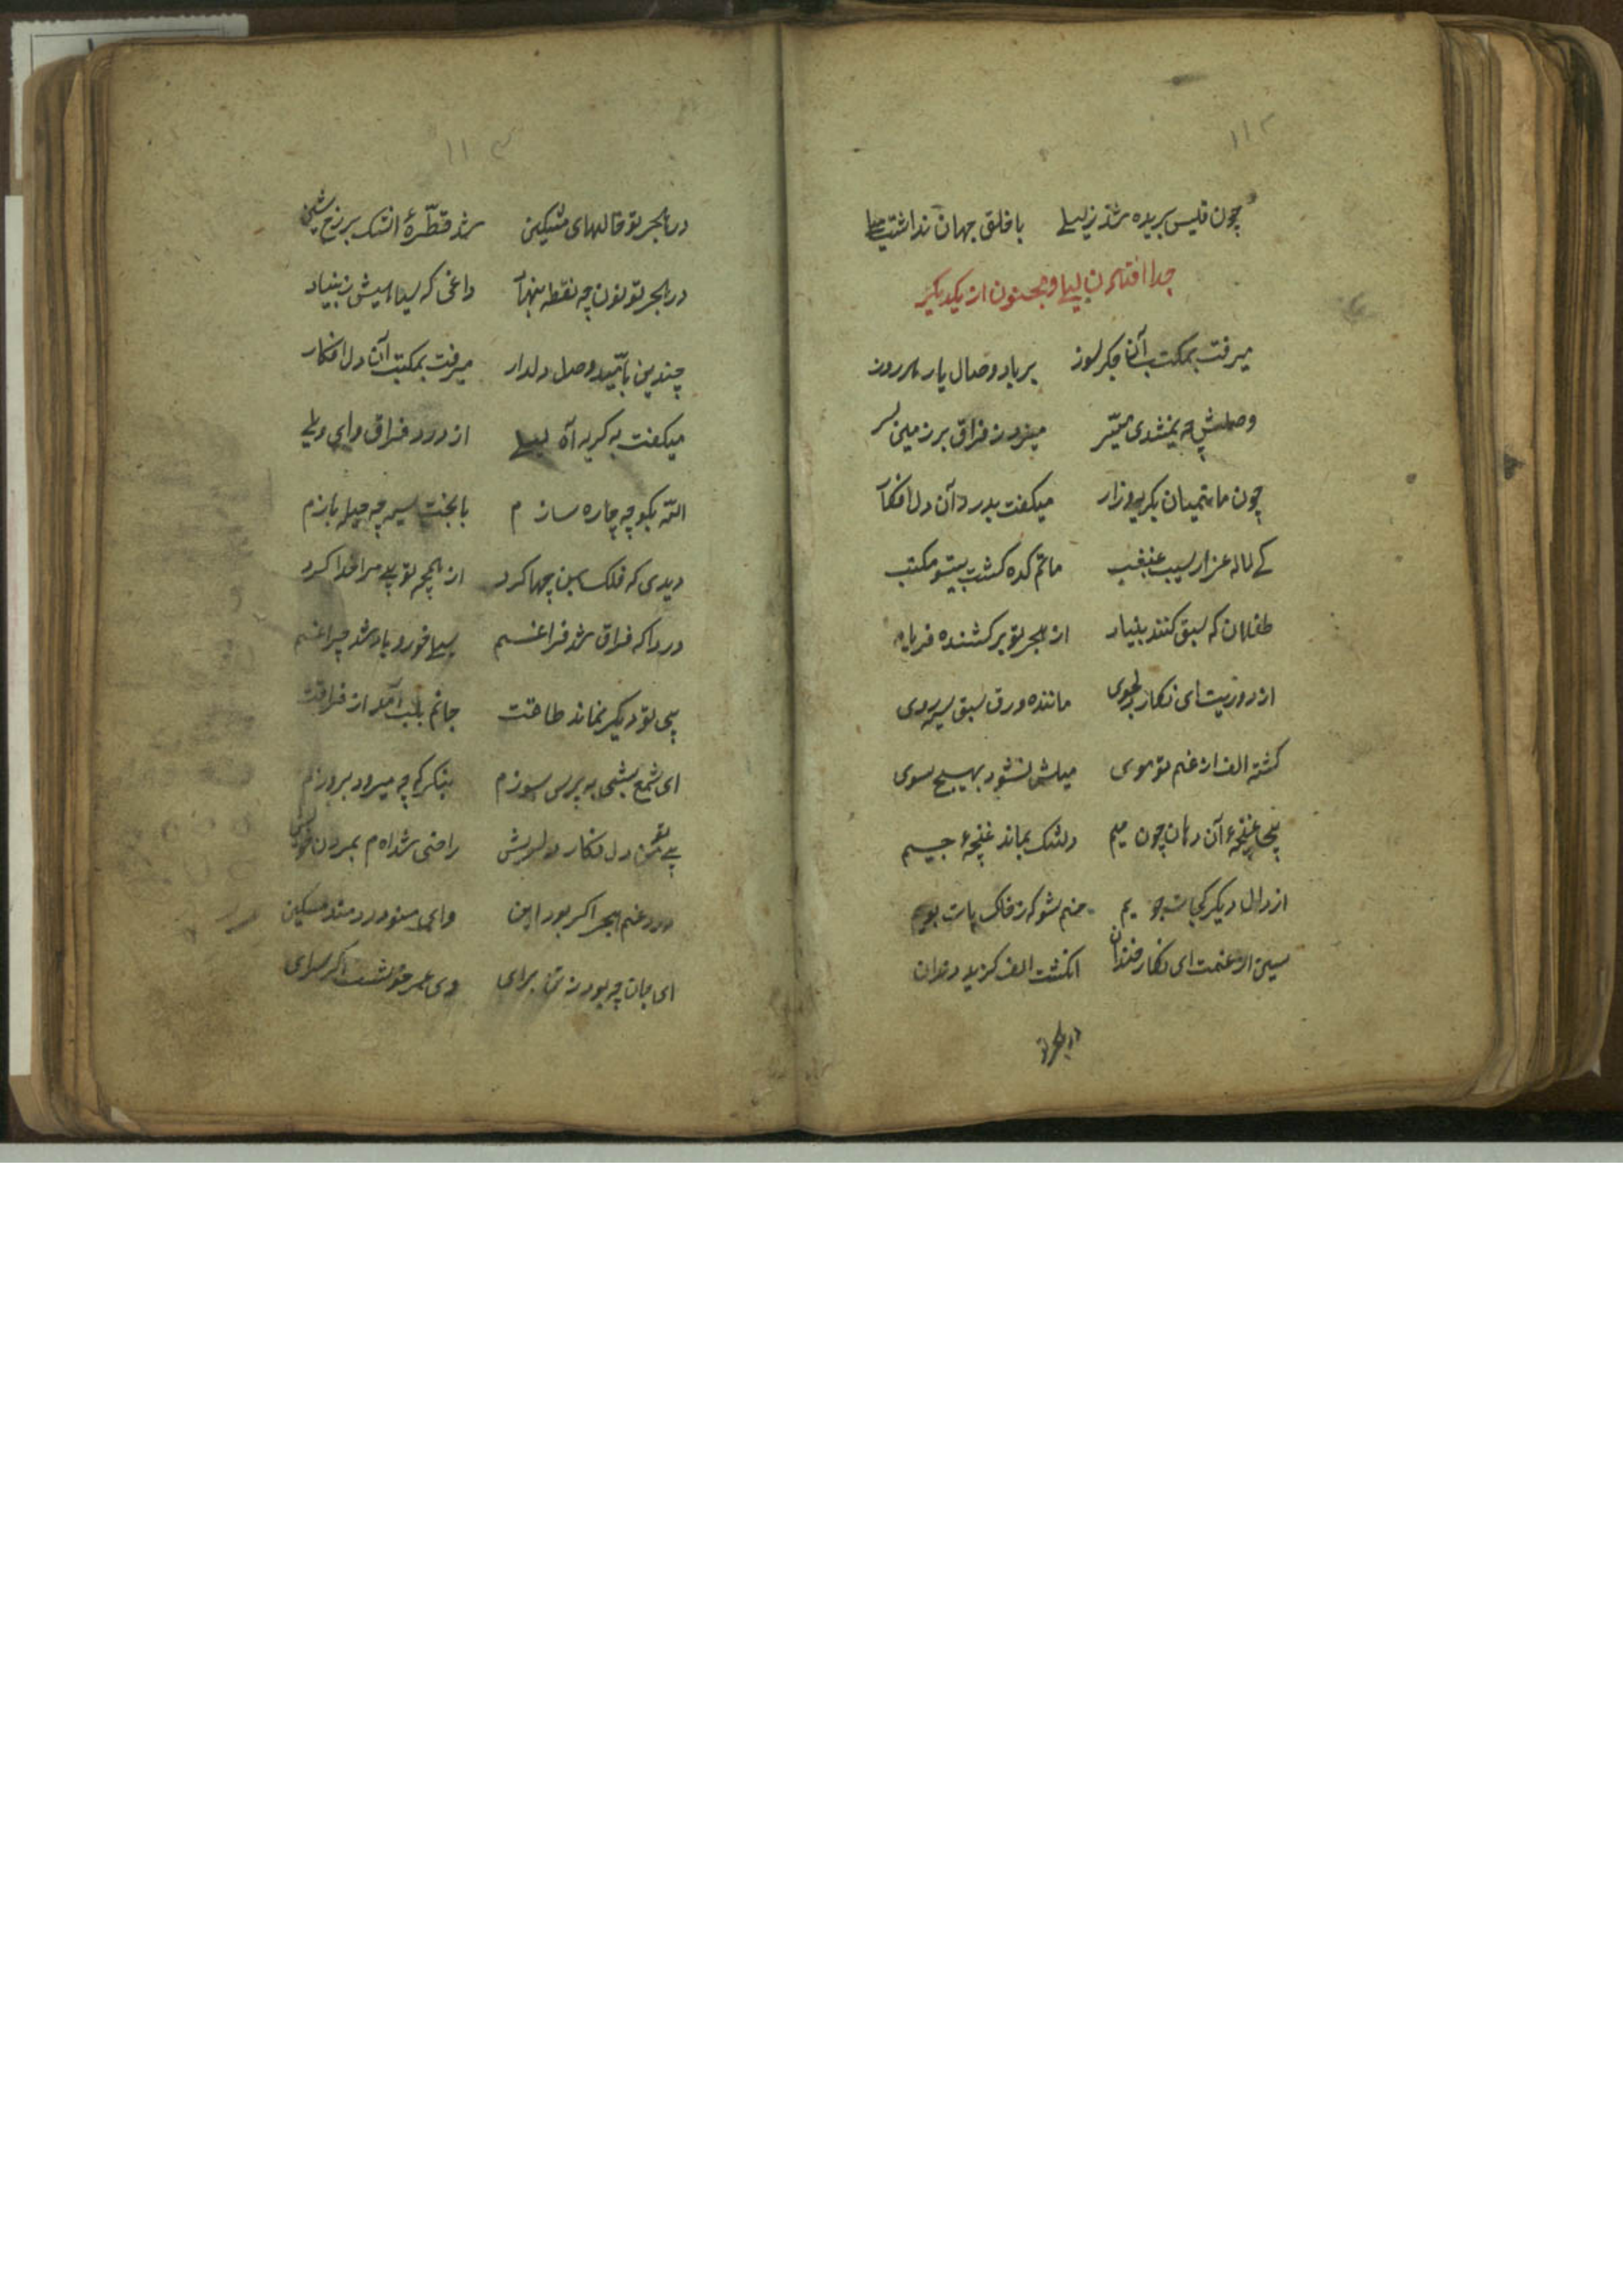 ۱۱۲
چون قیس بریده شد ز لیلے با خلق جهان نداشت میلے
جدا افتادن لیلی و مجنون از یکدیگر
میرفت بمکتب آن جگر سوز بر یاد وصال یار هر روز
وصلش چه نمیشدی میسّر میزد ز فراق بر زمین سر
چون ماتمیان بگریه و زار میگفت بدرد آن دل افکار
کے لاله عزار سیب غبغب ماتم کده گشت بیتو مکتب
طفلان که سبق کنند بنیاد از هجر تو برکشنده فریاد
از دوریت ای نگار دلجوی مانده ورق سبق سیه روی
گشته الف از غم تو موی میلش نشود بهیچ سوی
بی غنچهٔ آن دهان چون میم دلتنگ بماند غنچهٔ جیم
از دال دیگر کجات جویم منم شو که ز خاک پات بویم
سین از غمت ای نگار خندان انگشت الف گزید دندان
در هجر تو
۱۱۳
در هجر تو خالهای مشکین شد قطرهٔ اشک بر رخ شین
در هجر تو نون چه نقطه بنهاد داغی که سیاهیش ز بنیاد
چندین بامّید وصل دلدار میرفت بمکتب آن دل افکار
میگفت به گریه آه لیلے از درد فراق وای ویلے
اللّه بگو چه چاره سازم با بخت سیه چه حیله بازم
دیدی که فلک بمن چها کرد از همچو تو یے مرا جدا کرد
دردا که فراق شد فراغم سیلی خورد باد شد چراغم
بی تو دیگر نماند طاقت جانم بلب آمد از فراقت
ای شمع بشبی به پرس سوزم بنگر که چه میرود بروزم
بے تو من دل فکار دلریش راضی شده‌ام بمردن خویش
درد غم هجر اگر بود این وای من و درد مند مسکین
ای جان چه بود ز تن برای وی عمر خوشست اگر سرای